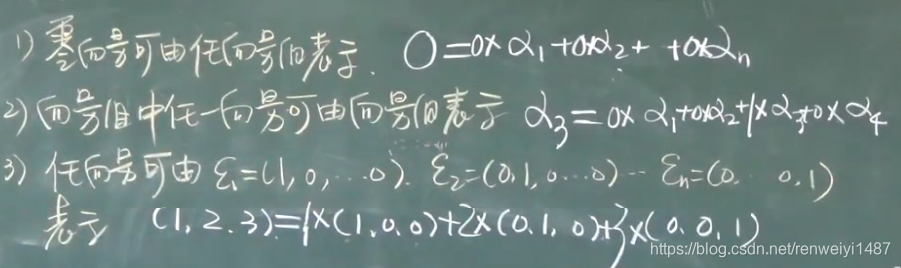 1) 零向量可由任向量组表示. O=0×α₁+0×α₂+ +0×αₙ
2) 向量组中任一向量可由向量组表示 α₃=0×α₁+0×α₂+1×α₃+0×α₄
3) 任向量可由 ε₁=(1,0,…0). ε₂=(0.1,0…0)…εₙ=(0. 0.1)
表示 (1.2.3)=1×(1.0.0)+2×(0.1,0)+3×(0.0,1)
https://blog.csdn.net/renweiyi1487